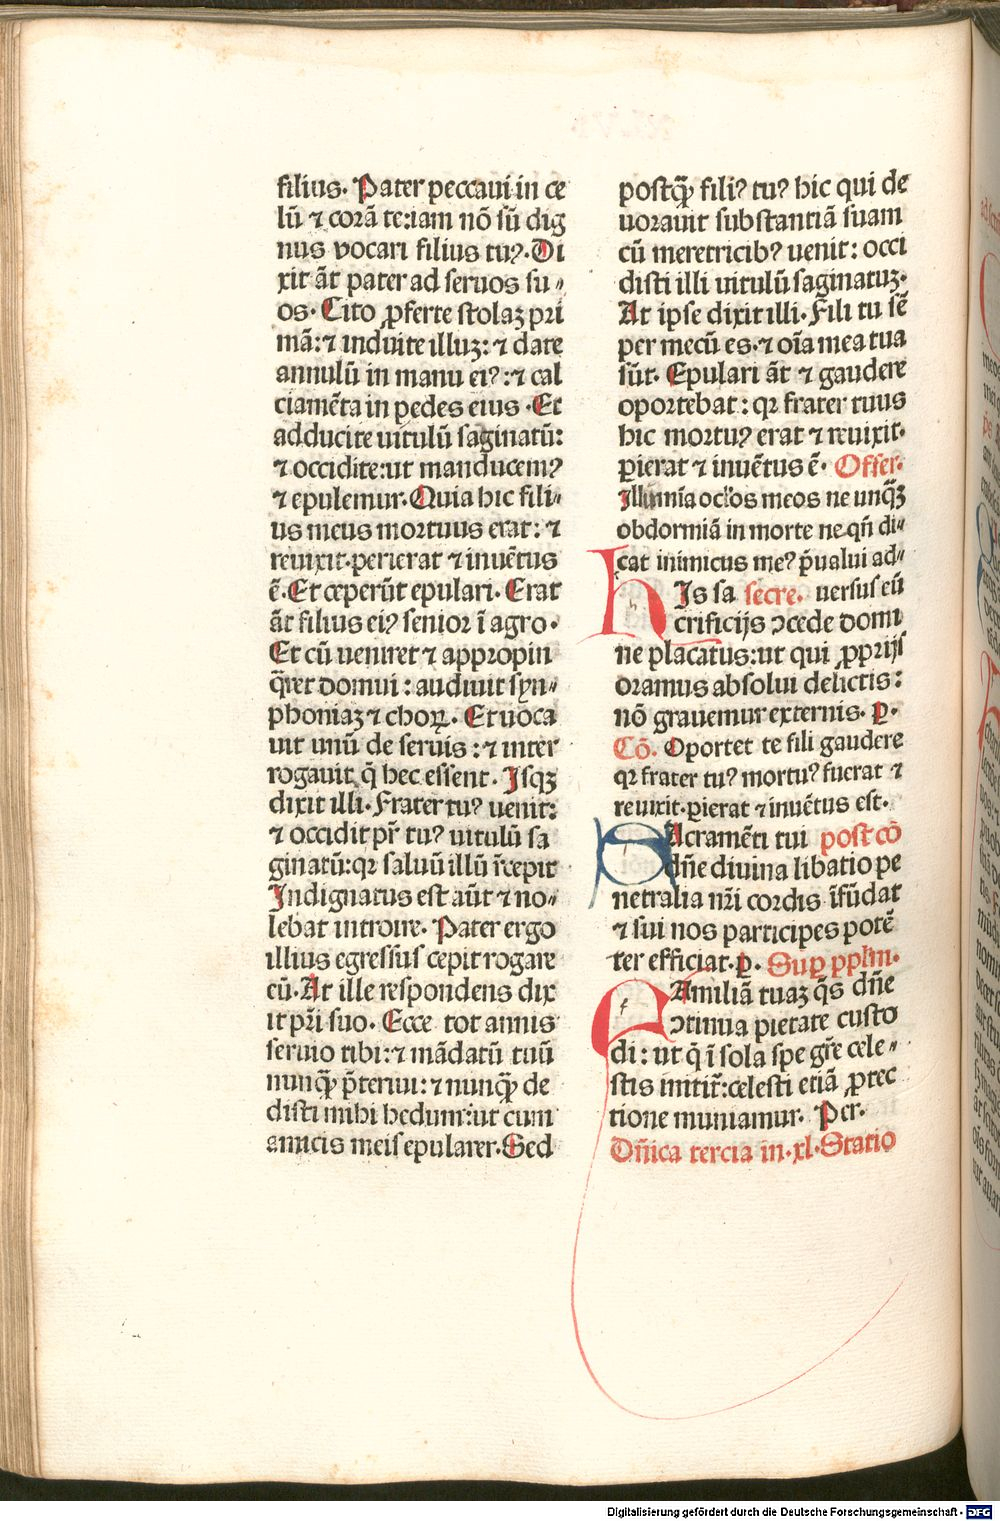 filius. Pater peccaui in ce
lū ⁊ corā te:iam nō sū dig
nus vocari filius tuꝰ. Di
xit āt pater ad seruos su⸗
os. Cito ꝓferte stolaꝫ pri
mā:⁊ induite illuꝫ:⁊ date
annulū in manu eiꝰ:⁊ cal
ciamēta in pedes eius. Et
adducite uitulū saginatū:
⁊ occidite:ut manducemꝰ
⁊ epulemur. Quia hic fili⸗
us meus mortuus erat: ⁊
reuixit.perierat ⁊ inuētus
ē. Et ceperūt epulari. Erat
āt filius eiꝰ senior ī agro.
Et cū ueniret ⁊ appropin
q̄ret domui: audiuit syn⸗
phoniaꝫ ⁊ choꝝ. Et uoca
uit unū de seruis:⁊ inter
rogauit q̄ hec essent. Isqꝫ
dixit illi. Frater tuꝰ uenit:
⁊ occidit pr̄ tuꝰ uitulū sa
ginatū:qꝛ saluū illū r̄cepit
Indignatus est aūt ⁊ no⸗
lebat introire. Pater ergo
illius egressus cepit rogare
eū. At ille respondens dix
it pr̄i suo. Ecce tot annis
seruio tibi:⁊ mādatū tuū
nunqꝫ p̄teriui:⁊ nunqꝫ de
disti mihi hedum:ut cum
amicis meis epularer. Sed
postqꝫ filiꝰ tuꝰ hic qui de
uorauit substantiā suam
cū meretricibꝰ uenit: occi
disti illi uitulū saginatuꝫ.
At ipse dixit illi. Fili tu sē
per mecū es.⁊ oīa mea tua
sūt. Epulari āt ⁊ gaudere
oportebat: qꝛ frater tuus
hic mortuꝰ erat ⁊ reuixit.
ꝑierat ⁊ inuētus ē. Offer.
Illumīa oclos meos ne unqꝫ
obdormiā in morte ne qn̄ di⸗
cat inimicus meꝰ p̄ualui ad⸗
His sa secre. uersus eū
crificijs ↄcede domi
ne placatus:ut qui ꝓprijs
oramus absolui delictis:
nō grauemur externis. ꝑ.
Cō. Oportet te fili gaudere
qꝛ frater tuꝰ mortuꝰ fuerat ⁊
reuixit.ꝑierat ⁊ inuētus est.
SAcramēti tui post cō
dn̄e diuina libatio pe
netralia nr̄i cordis īfūdat
⁊ sui nos participes potē
ter efficiat. ꝑ. Suꝑ pplm̄.
FAmiliā tuaꝫ q̄s dn̄e
ↄtinua pietate custo
di: ut q̄ ī sola spe gr̄e cele⸗
stis initit̄:celesti etiā ꝓtec
tione muniamur. Per.
Dn̄ica tercia in.xl. Statio
Digitalisierung gefördert durch die Deutsche Forschungsgemeinschaft - DFG